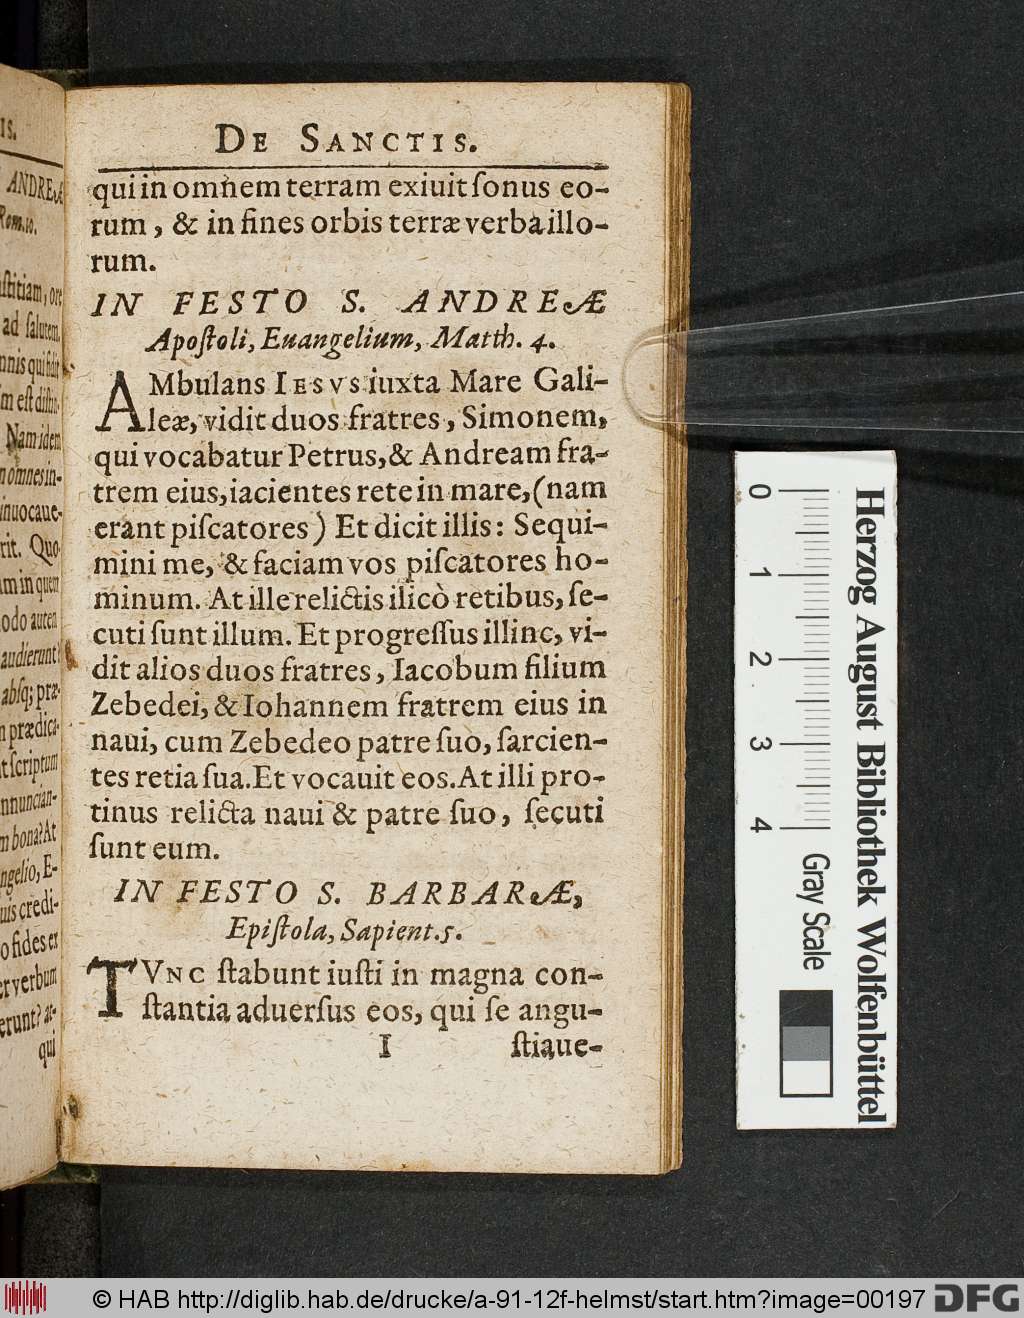 IS.
ANDREÆ
Rom. 10.
stitiam, ore
ad salutem.
nnis qui fidit
m est distin-
Nam idem
omnes in-
inuocaue-
rit. Quo-
am in quem
odo autem
audierunt?
absq; præ-
n prædica-
t scriptum
nnuncian-
m bona? At
ngelio, E-
uis credi-
o fides ex
er verbum
erunt? at-
qui
DE SANCTIS.
qui in omnem terram exiuit ſonus eo-
rum, & in fines orbis terræ verba illo-
rum.
IN FESTO S. ANDREÆ
Apoſtoli, Euangelium, Matth. 4.
AMbulans IESVS iuxta Mare Gali-
leæ, vidit duos fratres, Simonem,
qui vocabatur Petrus, & Andream fra-
trem eius, iacientes rete in mare, (nam
erant piſcatores) Et dicit illis: Sequi-
mini me, & faciam vos piſcatores ho-
minum. At ille relictis ilicò retibus, ſe-
cuti ſunt illum. Et progreſſus illinc, vi-
dit alios duos fratres, Iacobum filium
Zebedei, & Iohannem fratrem eius in
naui, cum Zebedeo patre ſuo, ſarcien-
tes retia ſua. Et vocauit eos. At illi pro-
tinus relicta naui & patre ſuo, ſecuti
ſunt eum.
IN FESTO S. BARBARÆ,
Epiſtola, Sapient. 5.
TVNC ſtabunt iuſti in magna con-
ſtantia aduerſus eos, qui ſe angu-
I ſtiaue-
0 1 2 3 4
Gray Scale
Herzog August Bibliothek Wolfenbüttel
© HAB http://diglib.hab.de/drucke/a-91-12f-helmst/start.htm?image=00197
DFG